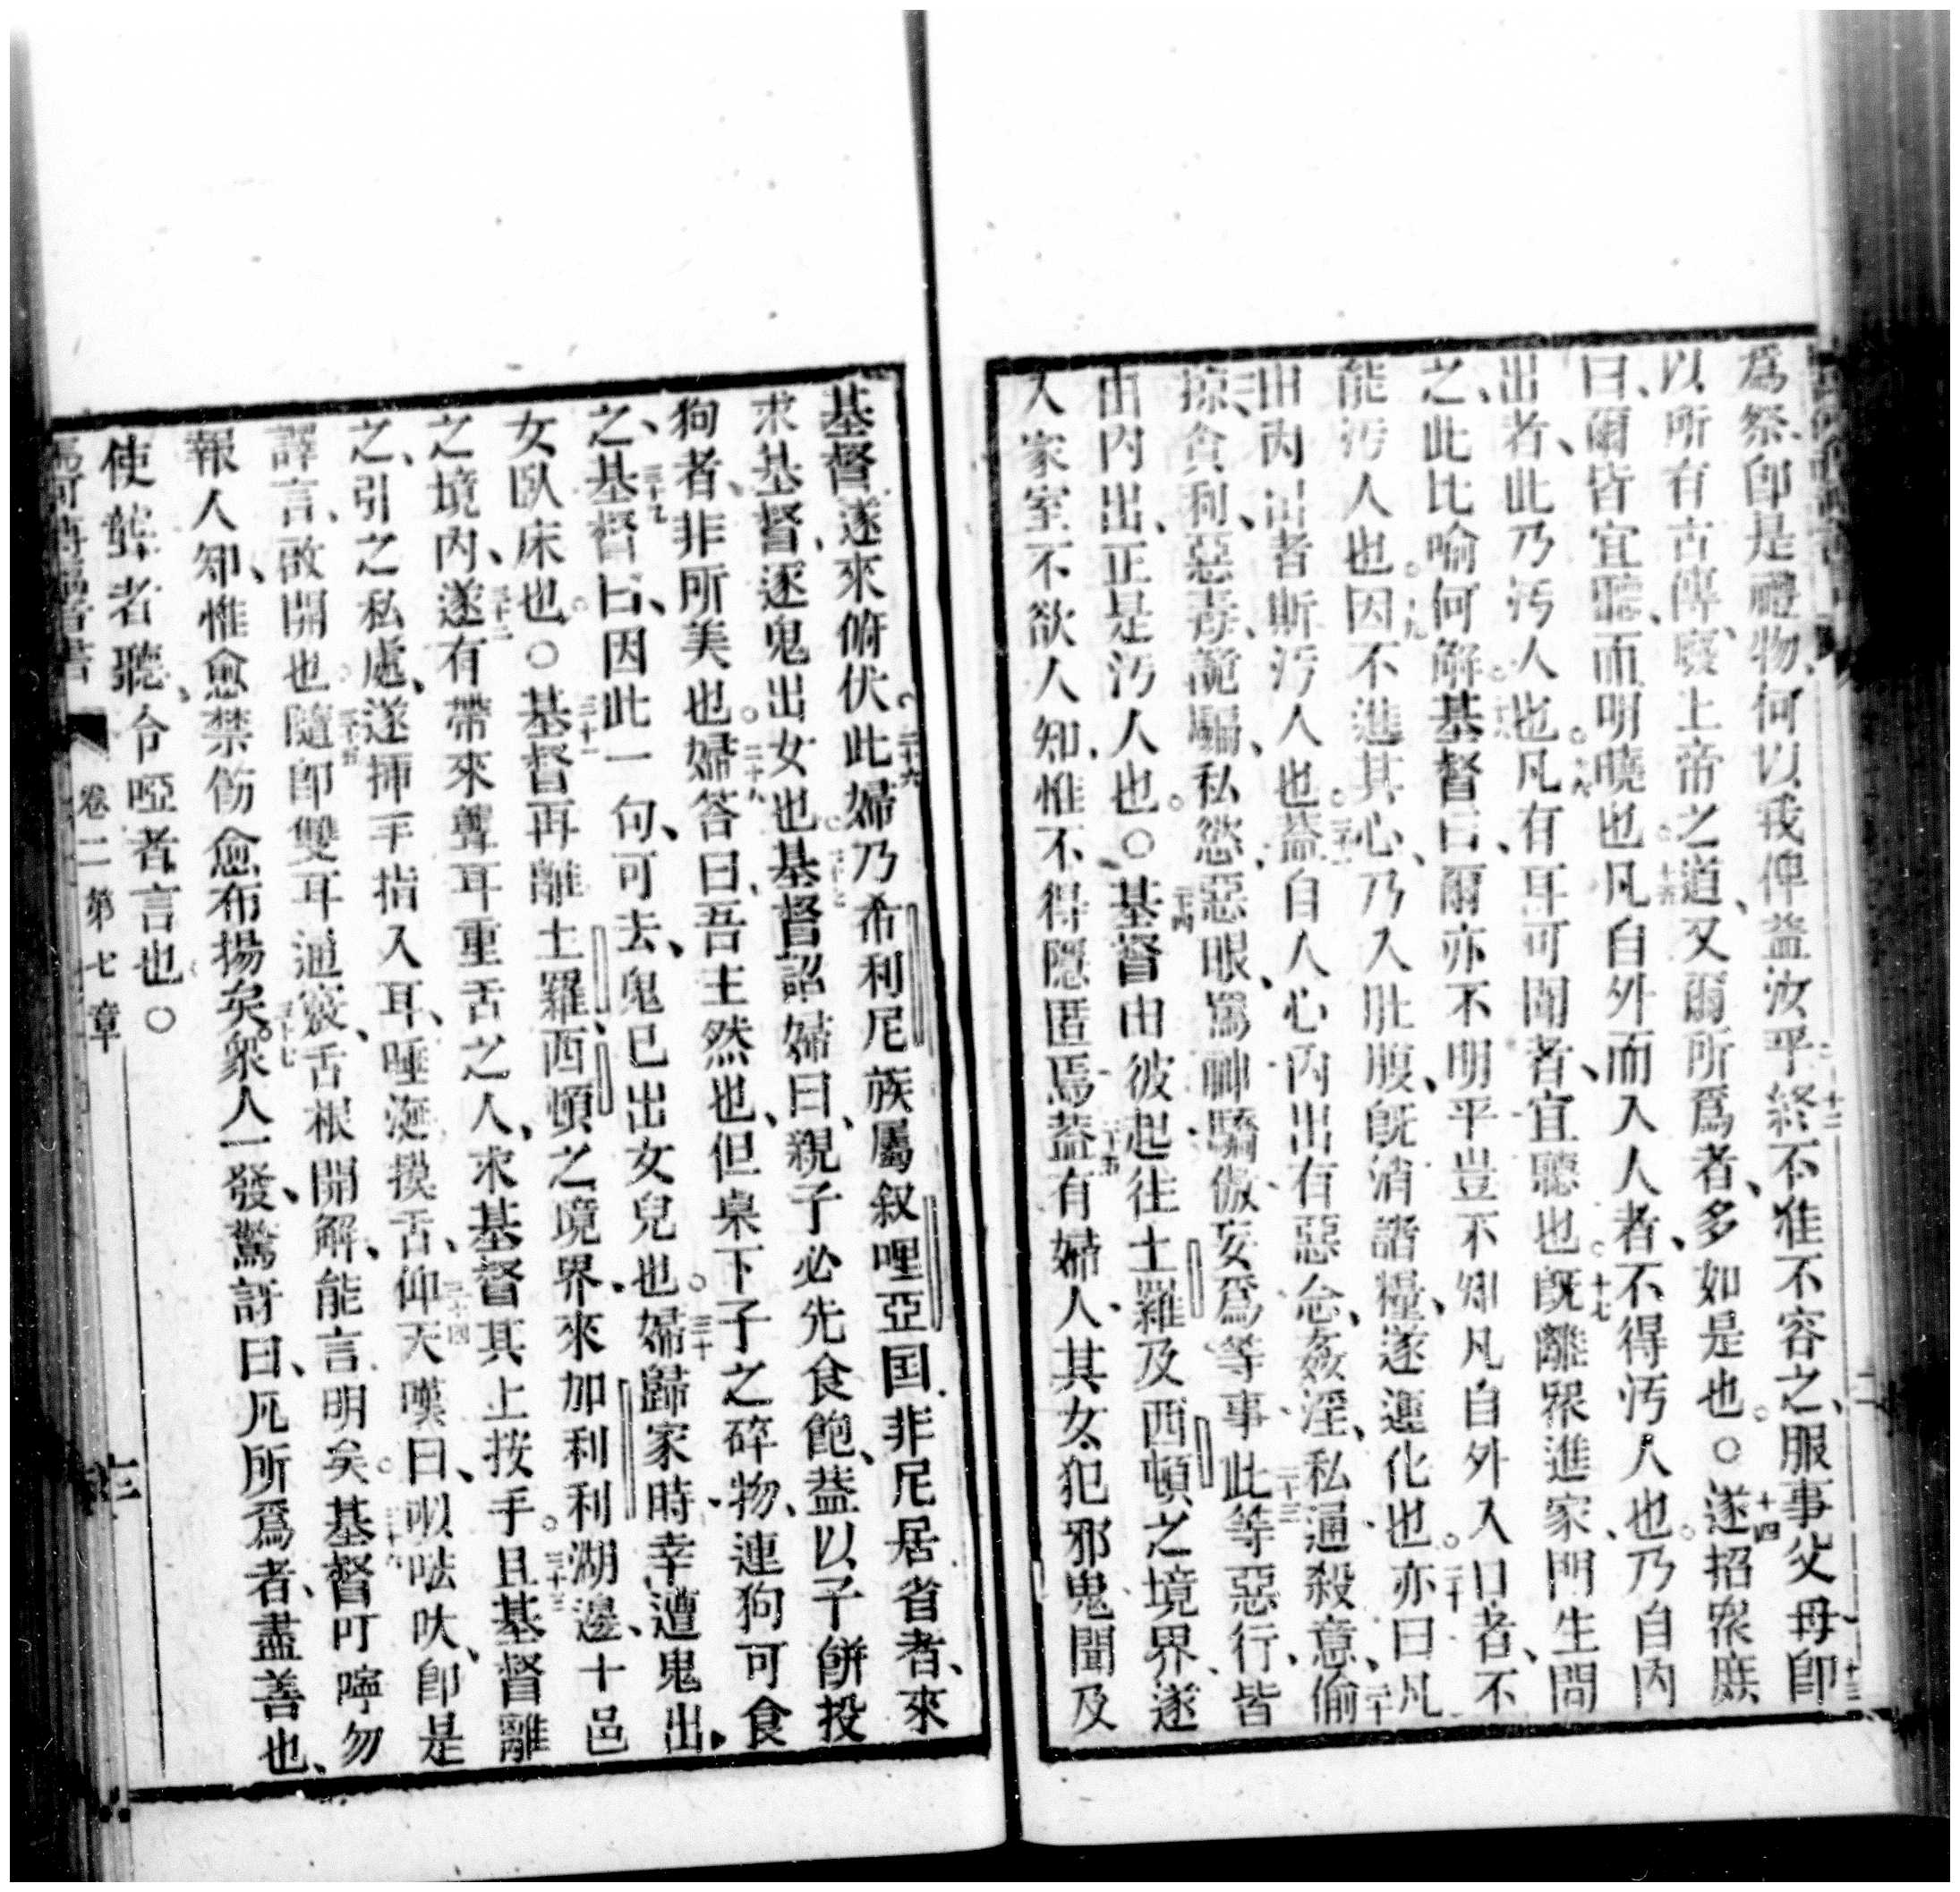 爲祭、卽是禮物、何以我俾益汝乎、十二終不准不容之、服事父母卽十三
以所有古傳、廢上帝之道、又爾所爲者、多如是也。○十四遂招衆庶
曰、爾皆宜聽、而明曉也。十五凡自外而入人者、不得汚人也。乃自內
出者、此乃汚人也。十六凡有耳可聞者、宜聽也。十七旣離衆進家、門生問
之、此比喻何解。十八基督曰、爾亦不明乎、豈不知凡自外入口者、不
能汚人也。十九因不進其心、乃入肚腹、旣消諸糧、遂運化也。二十亦曰凡
由內出者斯汚人也。二十一蓋自人心內出有惡念、姦淫、私通、殺意、偷二十二
掠、貪利、惡毒、詭騙、私慾、惡眼、罵神、驕傲、妄爲等事、二十三此等惡行、皆
由內出、正是汚人也。○二十四基督由彼起往土羅及西頓之境界、遂
入家室、不欲人知、惟不得隱匿焉、二十五蓋有婦人、其女犯邪鬼、聞及
基督遂來俯伏、二十六此婦乃希利尼族屬叙哩亞国、非尼居省者、來
求基督、逐鬼出女也。二十七基督詔婦曰、親子必先食飽、蓋以子餅投
狗者、非所美也。二十八婦答曰、吾主然也、但桌下子之碎物、連狗可食
之、二十九基督曰、因此一句、可去、鬼已出女兒也。三十婦歸家時、幸遭鬼出、
女臥床也。○三十一基督再離土羅、西頓之境界、來加利利湖邊、十邑
之境內、三十二遂有帶來聾耳重舌之人、求基督其上按手。三十三且基督離
之、引之私處、遂揷手指入耳、唾涎摸舌、三十四仰天嘆曰、㕽呿吠、卽是
譯言、啟開也。三十五隨卽雙耳通竅、舌根開解、能言明矣。三十六基督叮嚀勿
報人知、惟愈禁飭愈布揚矣。三十七衆人一發驚訝曰、凡所爲者、盡善也、
使聾者聽、令啞者言也。○
卷二第七章